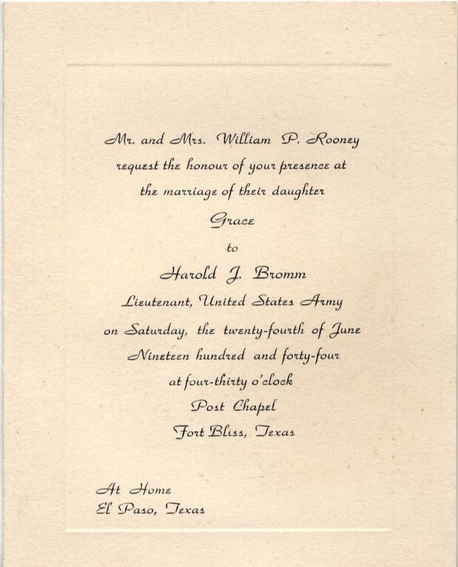 Mr. and Mrs. William P. Rooney
request the honour of your presence at
the marriage of their daughter
Grace
to
Harold J. Bromm
Lieutenant, United States Army
on Saturday, the twenty-fourth of June
Nineteen hundred and forty-four
at four-thirty o'clock
Post Chapel
Fort Bliss, Texas
At Home
El Paso, Texas